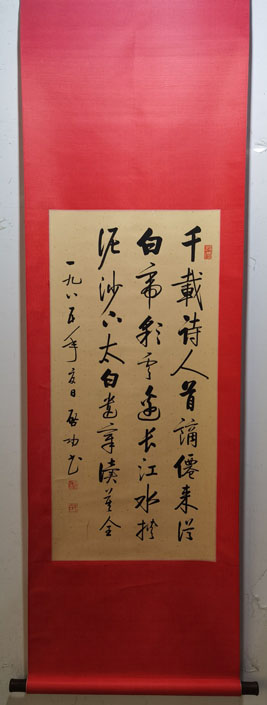 千载诗人首谪僊来从
白帝彩云边长江水挟
泥沙下太白遗章读莫全
一九八五年夏日启功书